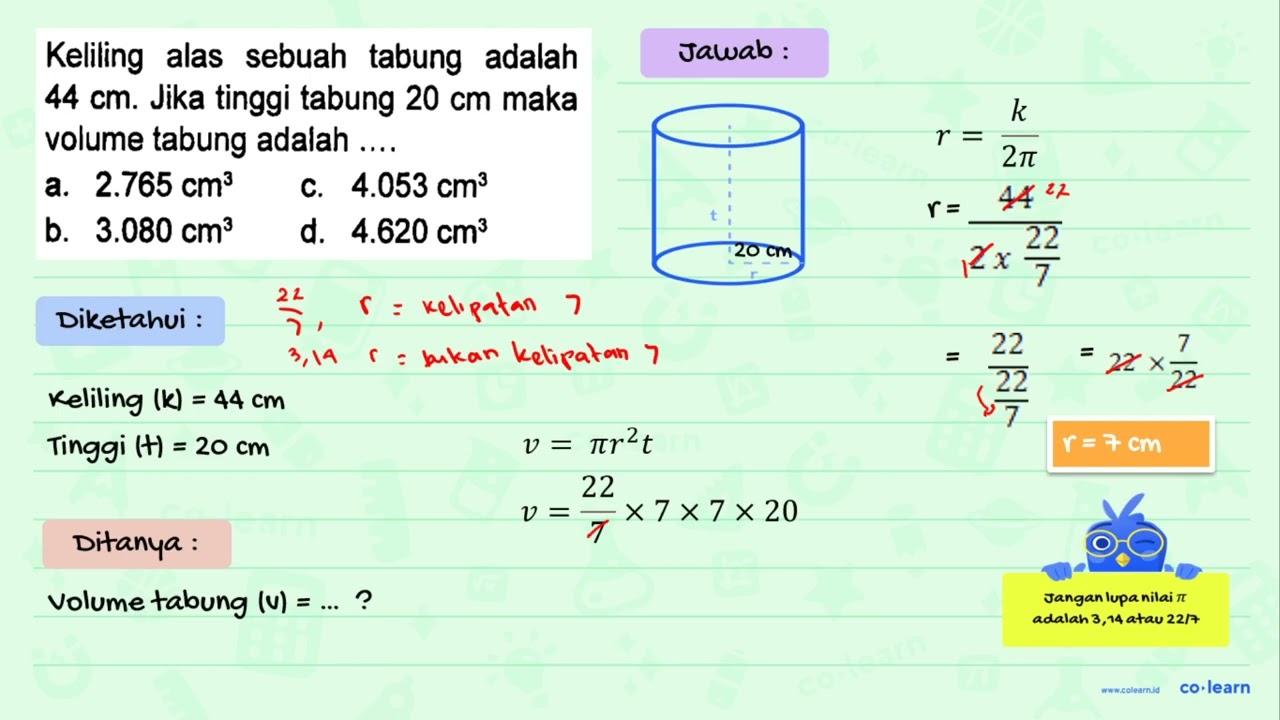 Keliling alas sebuah tabung adalah
44 cm. Jika tinggi tabung 20 cm maka
volume tabung adalah ....
a. 2.765 cm³ c. 4.053 cm³
b. 3.080 cm³ d. 4.620 cm³
Jawab :
t
20 cm
r
r = k / 2π
r = 44 22 / 2 1 x 22/7
= 22 / 22/7 = 22 × 7/22
r = 7 cm
Diketahui :
22/7, r = kelipatan 7
3,14 r = bukan kelipatan 7
Keliling (k) = 44 cm
Tinggi (t) = 20 cm
v = πr²t
v = 22/7 × 7 × 7 × 20
Ditanya :
Volume tabung (v) = ... ?
Jangan lupa nilai π
adalah 3,14 atau 22/7
www.colearn.id co·learn